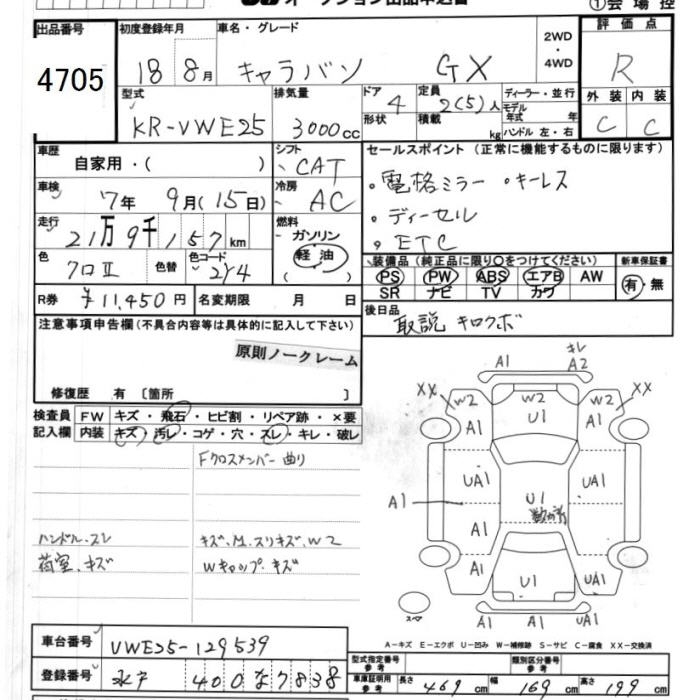 オークション出品申込書
①会場控
出品番号
4705
初度登録年月
18 8月
車名・グレード
キャラバン GX
2WD
・
4WD
評価点
R
型式
KR-VWE25
排気量
3000cc
ドア 4
形状
定員 2(5)人
積載 kg
ディーラー・並行
モデル
年式 年
ハンドル 左・右
外装 内装
C C
車歴
自家用・( )
シフト
CAT
セールスポイント(正常に機能するものに限ります)
。電格ミラー ・キーレス
。ディーセル
。ETC
車検
7年 9月(15日)
冷房
AC
走行
21万9千157km
燃料
ガソリン
軽油
( )
色
クロII
色替
色コード
2Y4
装備品(純正品に限り○をつけてください)
新車保証書
PS PW ABS エアB AW
SR ナビ TV カワ
有・無
R券 ¥11,450円
名変期限 月 日
後日品
取説 キロクボ
注意事項申告欄(不具合内容等は具体的に記入して下さい)
原則ノークレーム
修復歴 有〔箇所 〕
検査員
記入欄
FW キズ・飛石・ヒビ割・リペア跡・×要
内装 キズ・汚レ・コゲ・穴・スレ・キレ・破レ
Fクロスメンバー曲り
ハンドル.スレ
キズ、M.スリキズ、W2
荷室.キズ
Wキャップ.キズ
A1 キレ
A2
XX W2 W2 W2 XX
A1 U1 A1
UA1 UA1
A1 U1
数ヶ所
A1
A1 U1 UA1
A1 A1 UA1
スペア
A-キズ E-エクボ U-凹み W-補修跡 S-サビ C-腐食 XX-交換済
車台番号
VWE25-129539
登録番号
水戸 400 な 7838
型式指定番号
参考
類別区分番号
参考
車庫証明用
参考
長さ 469cm 幅 169cm 高さ 199cm